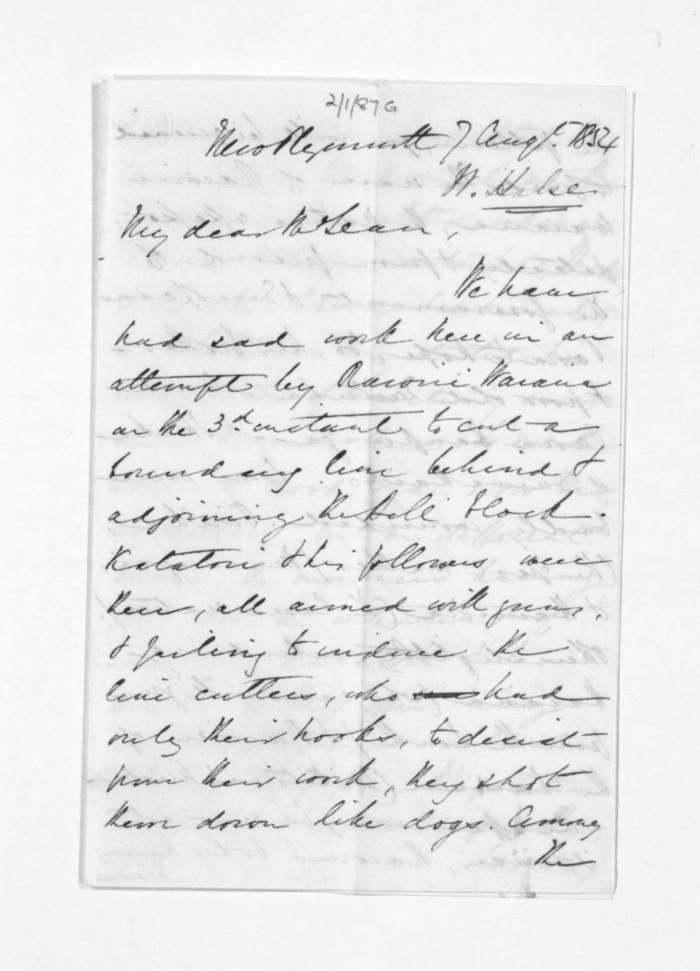 2/1/87G
New Plymouth 7 Augt. 1854
W. Halse
My dear McLean,
We have
had sad work here in an
attempt by Rawiri Waiaua
on the 3rd instant to cut a
boundary line behind &
adjoining the Bell block.
Katatori & his followers were
there, all armed with guns,
& failing to induce the
line cutters, who had
only their hooks, to desist
from their work, they shot
them down like dogs. Among
the